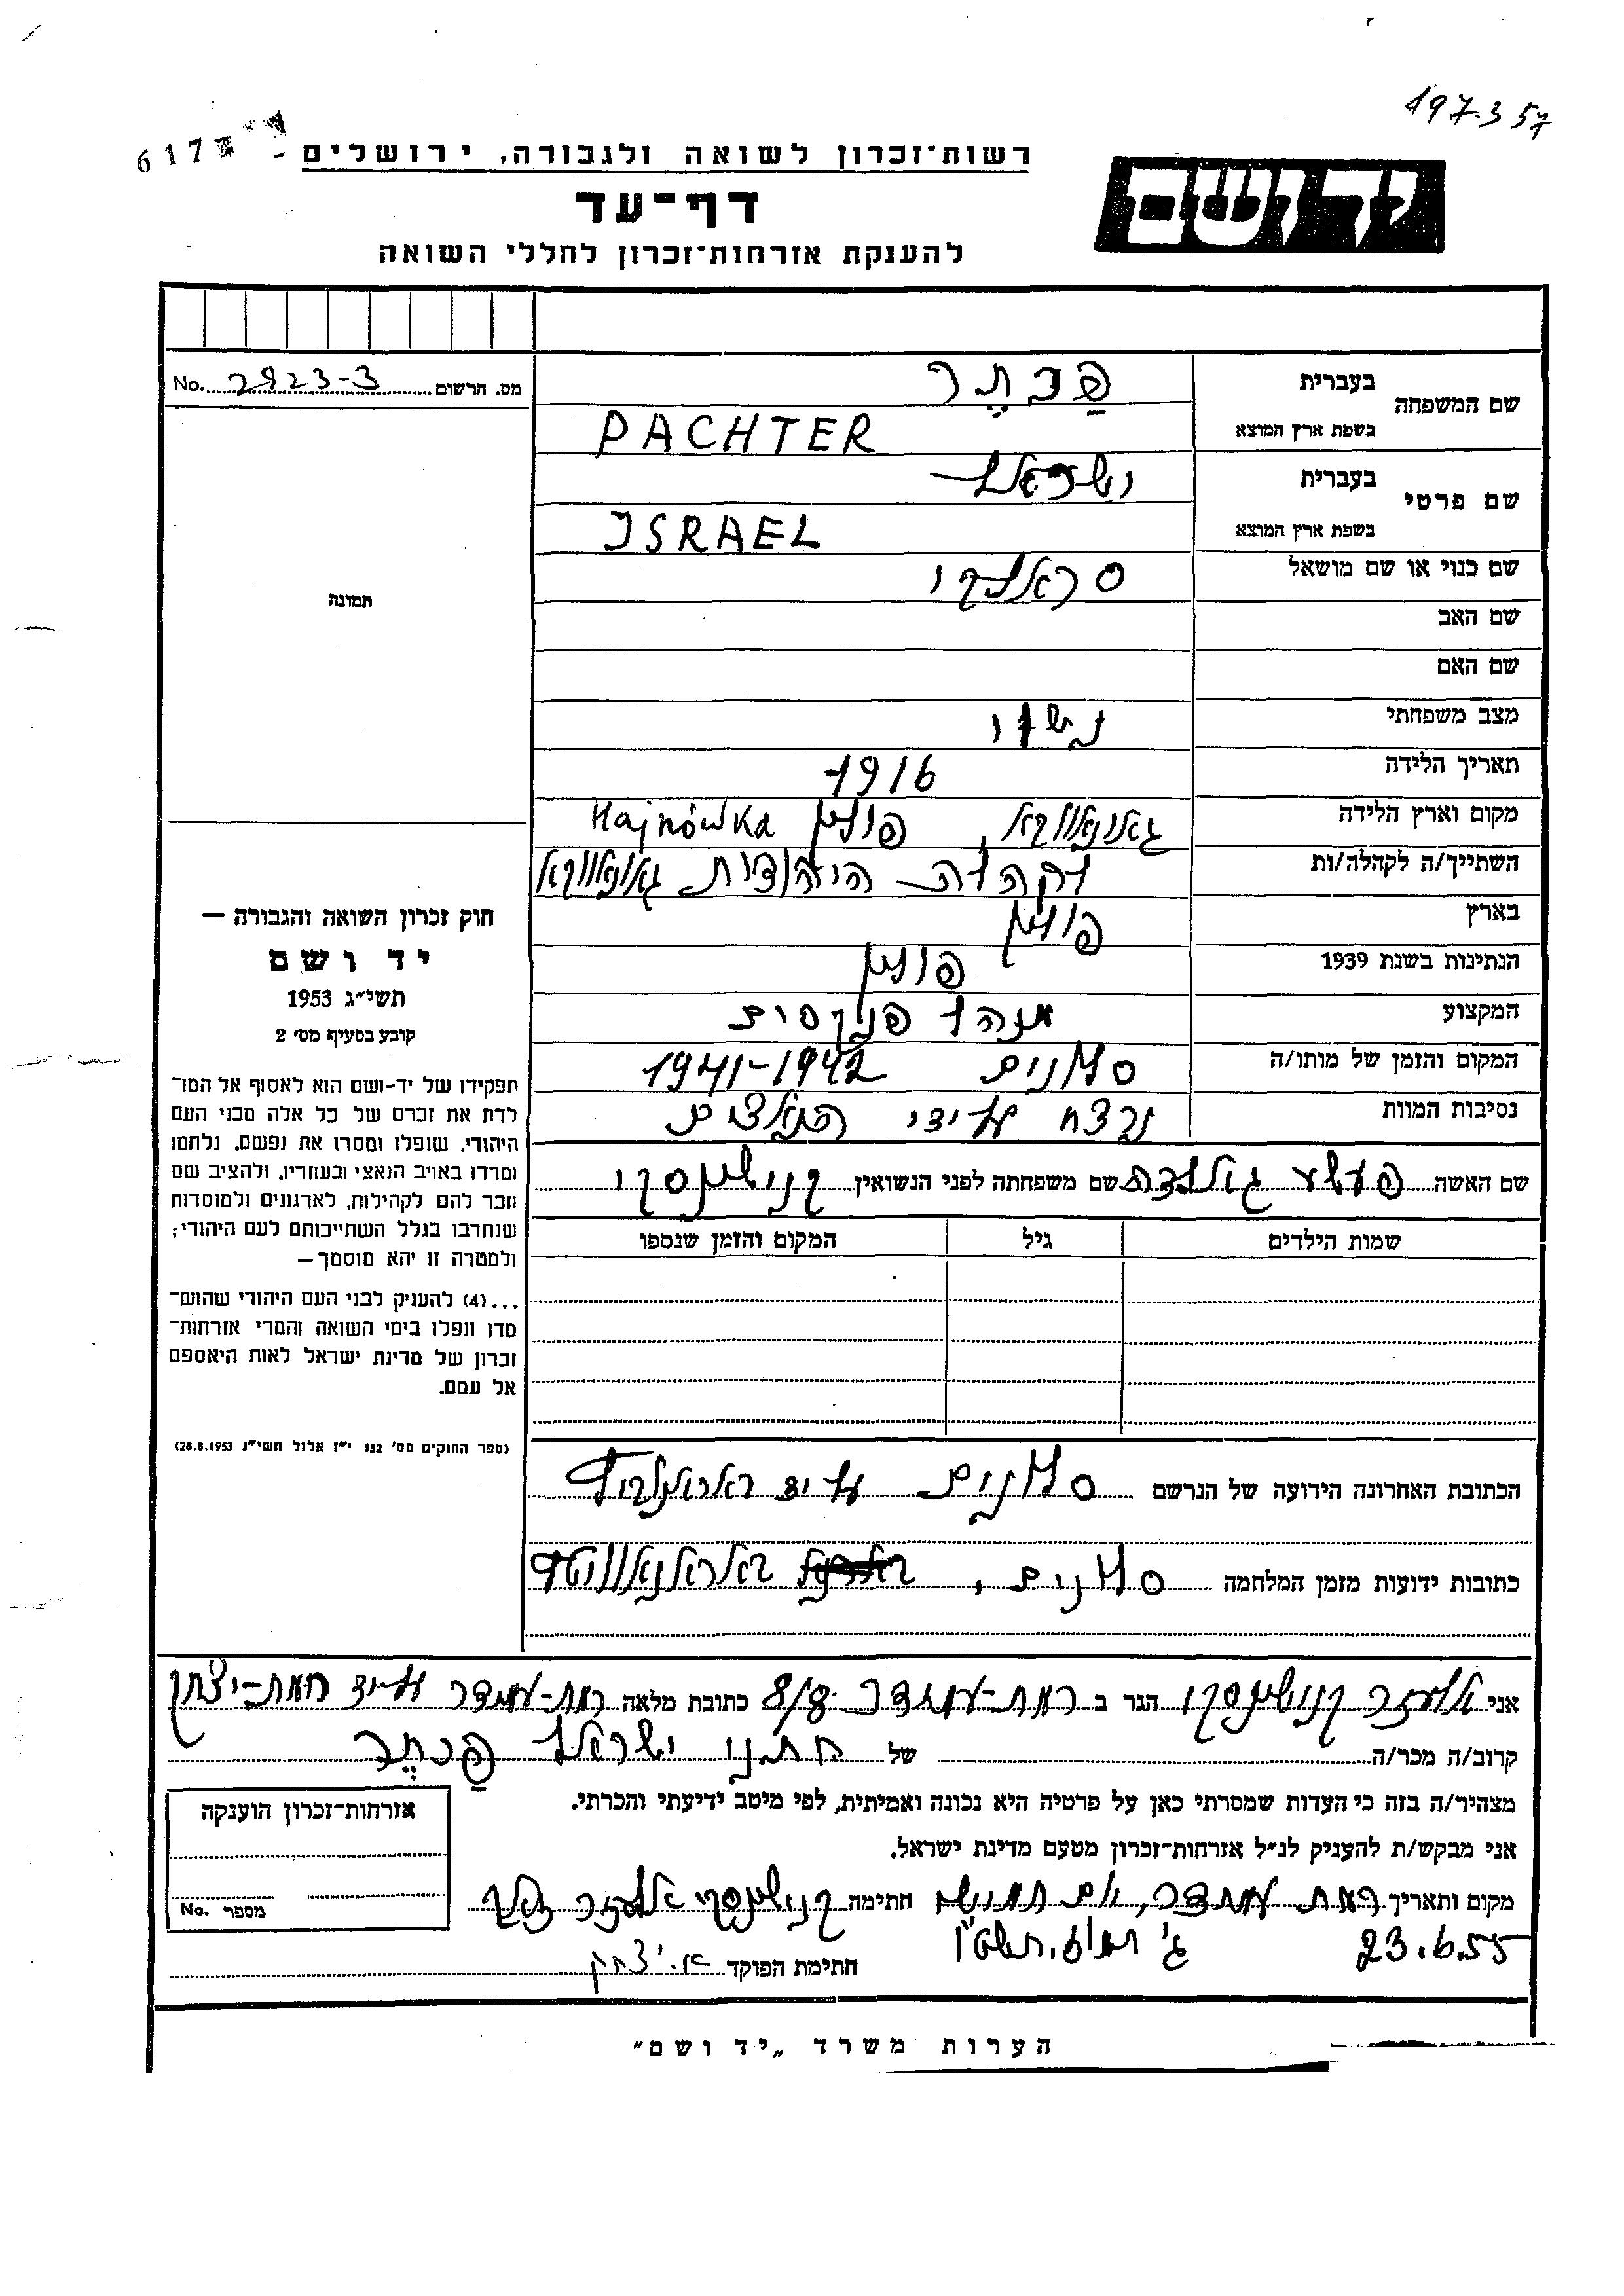 197.357
617
רשות־זכרון לשואה ולגבורה, ירושלים
יד ושם
דף־עד
להענקת אזרחות־זכרון לחללי השואה
מס. הרשום No. 2923-3
שם המשפחה
בעברית פַּכְטֶר
בשפת ארץ המוצא PACHTER
שם פרטי
בעברית ישראל
בשפת ארץ המוצא ISRAEL
שם כנוי או שם מושאל
תמונה
שם האב
שם האם
מצב משפחתי נשוי
תאריך הלידה 1916
מקום וארץ הלידה פולין Hajnówka
השתייך/ה לקהלה/ות היהודית
בארץ פולין
הנתינות בשנת 1939 פולין
המקצוע מנהל פנקסים
המקום והזמן של מותו/ה סלונים 1941-1942
נסיבות המוות נרצח על ידי הנאצים
שם האשה שם משפחתה לפני הנשואין
שמות הילדים גיל המקום והזמן שנספו
חוק זכרון השואה והגבורה –
יד ושם
תשי״ג 1953
קובע בסעיף מס׳ 2
תפקידו של יד-ושם הוא לאסוף אל המו־
לדת את זכרם של כל אלה מבני העם
היהודי, שנפלו ומסרו את נפשם, נלחמו
ומרדו באויב הנאצי ובעוזריו, ולהציב שם
וזכר להם לקהילות, לארגונים ולמוסדות
שנחרבו בגלל השתייכותם לעם היהודי;
ולמטרה זו יהא מוסמך –
...(4) להעניק לבני העם היהודי שהוש־
מדו ונפלו בימי השואה והמרי אזרחות־
זכרון של מדינת ישראל לאות היאספם
אל עמם.
(ספר החוקים מס׳ 132 י״ז אלול תשי״ג 28.8.1953)
הכתובת האחרונה הידועה של הנרשם סלונים על יד
כתובות ידועות מזמן המלחמה סלונים,
אני אלעזר הגר ב רמת- 8/8 כתובת מלאה רמת- על יד רמת-יצחק
קרוב/ה מכר/ה של חתני ישראל פַּכְטֶר
מצהיר/ה בזה כי העדות שמסרתי כאן על פרטיה היא נכונה ואמיתית, לפי מיטב ידיעתי והכרתי.
אני מבקש/ת להעניק לנ״ל אזרחות־זכרון מטעם מדינת ישראל.
מקום ותאריך רמת יום חמישי חתימה אלעזר
23.6.55 ג׳ תמוז, תשט״ו
חתימת הפוקד א. יצחק
אזרחות־זכרון הוענקה
מספר No.
הערות משרד „יד ושם״